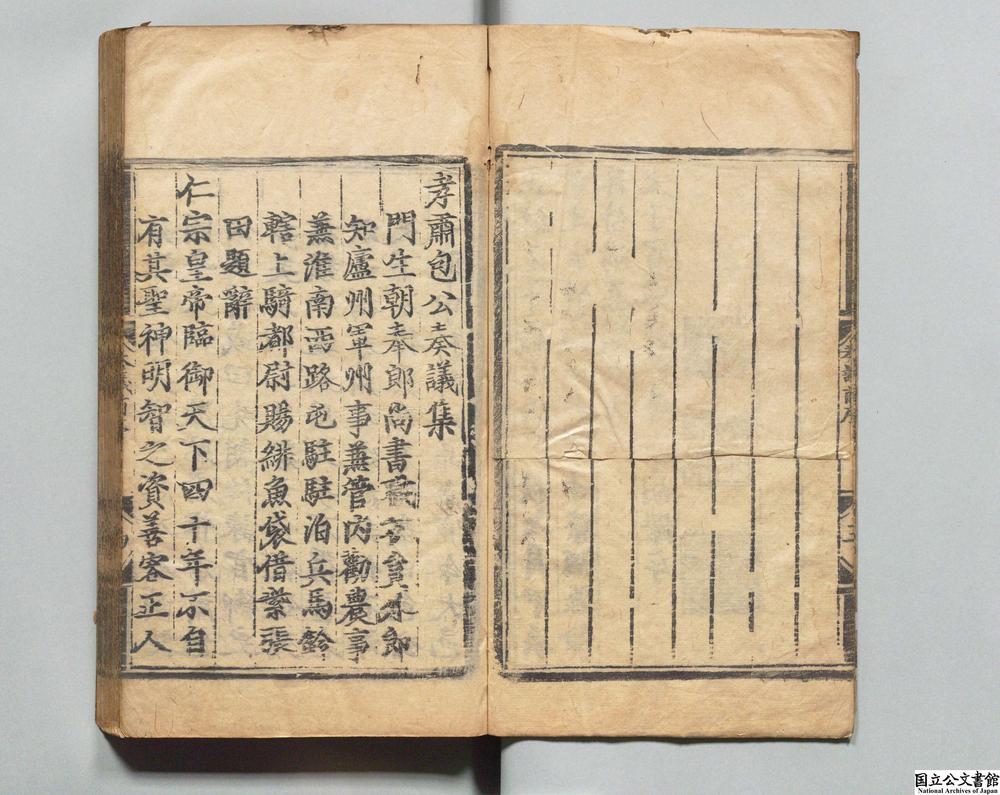 孝肅包公奏議集
門生朝奉郎尚書員外郎
知廬州軍州事兼管內勸農事
兼淮南西路屯駐駐泊兵馬鈐
轄上騎都尉賜緋魚袋借紫張
田題辭
仁宗皇帝臨御天下四十年不自
有其聖神明智之資善容正人
国立公文書館
National Archives of Japan